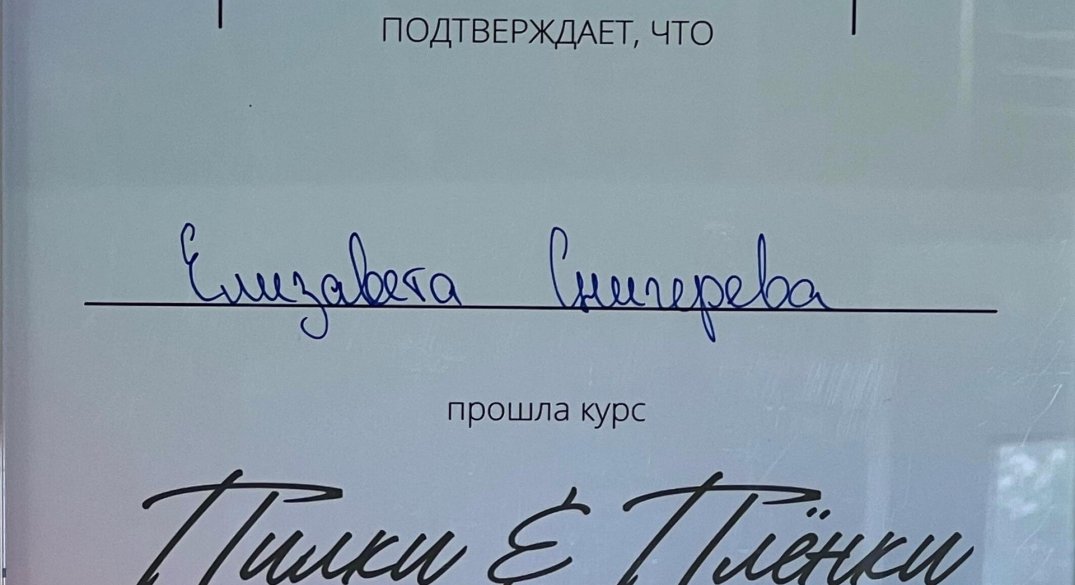 ПОДТВЕРЖДАЕТ, ЧТО
Елизавета Снигерева
прошла курс
Пилки & Плёнки